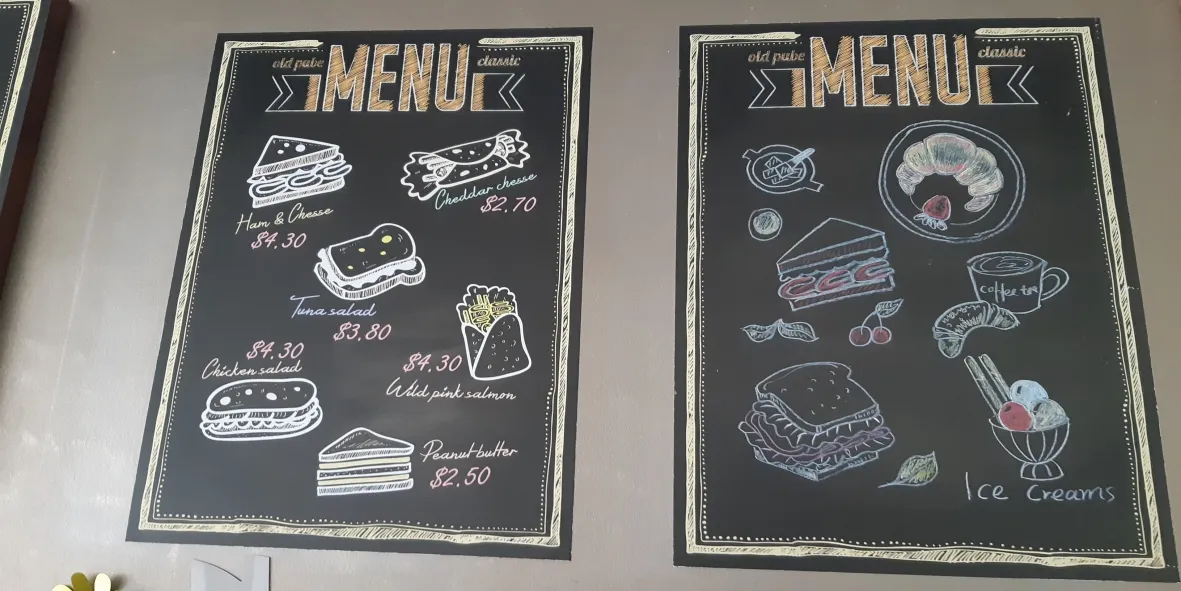 old pube MENU classic
Ham & Chesse
$4.30
Cheddar chesse
$2.70
Tuna salad
$3.80
$4.30
Chicken salad
$4.30
Wild pink salmon
Peanut butter
$2.50
old pube MENU classic
coffee tea
Ice Creams